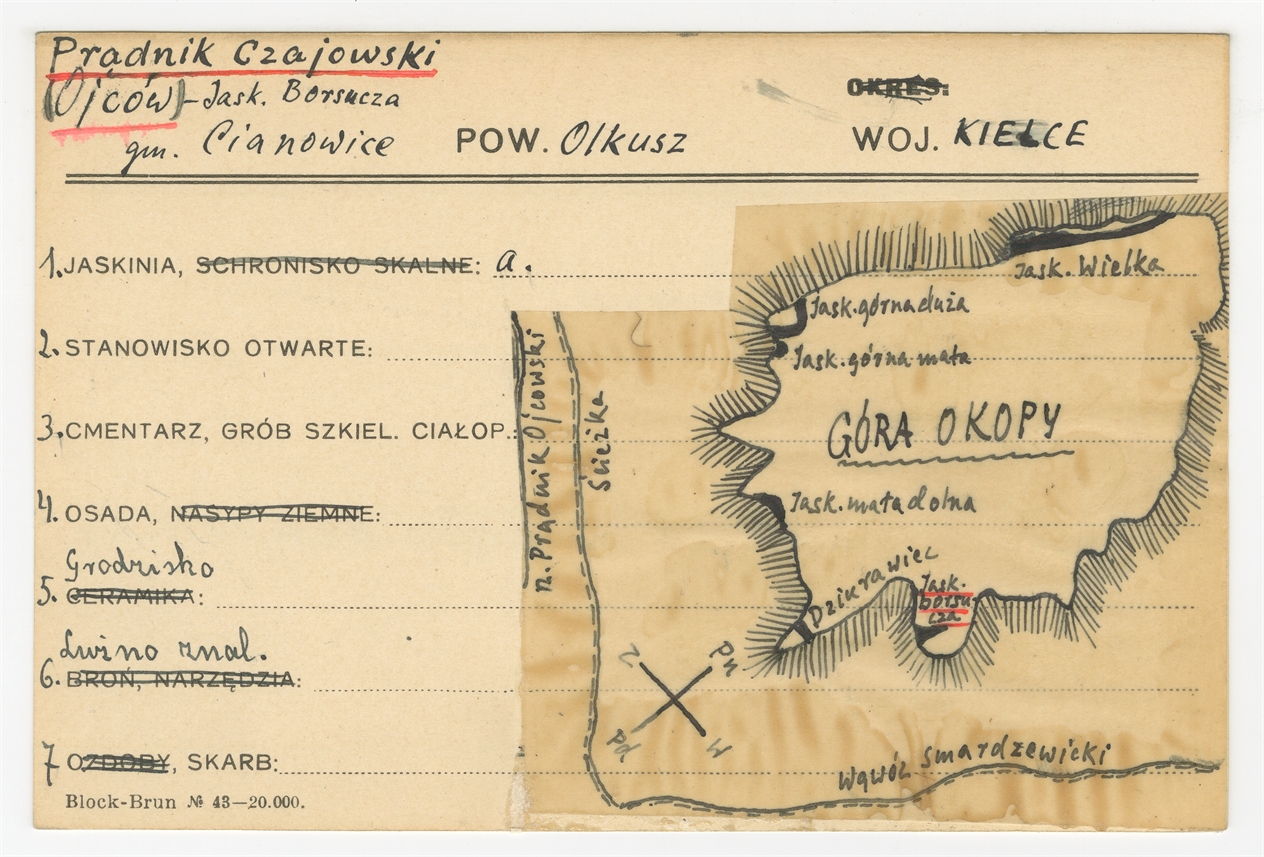 Prądnik Czajowski
(Ojców) - Jask. Borsucza
OKRES:
gm. Cianowice POW. Olkusz WOJ. KIELCE
1. JASKINIA, SCHRONISKO SKALNE: a.
2. STANOWISKO OTWARTE:
3. CMENTARZ, GRÓB SZKIEL. CIAŁOP.:
4. OSADA, NASYPY ZIEMNE:
Grodzisko
5. CERAMIKA:
Luźno znal.
6. BROŃ, NARZĘDZIA:
7 OZDOBY, SKARB:
Block-Brun № 43—20.000.
Jask. Wielka
Jask. górna duża
Jask. górna mała
GÓRA OKOPY
Jask. mała dolna
Dziurawiec
Jask.
borsu-
cza
rz. Prądnik Ojcowski
Ścieżka
Z
Pn
Pd
W
Wąwóz Smardzewicki